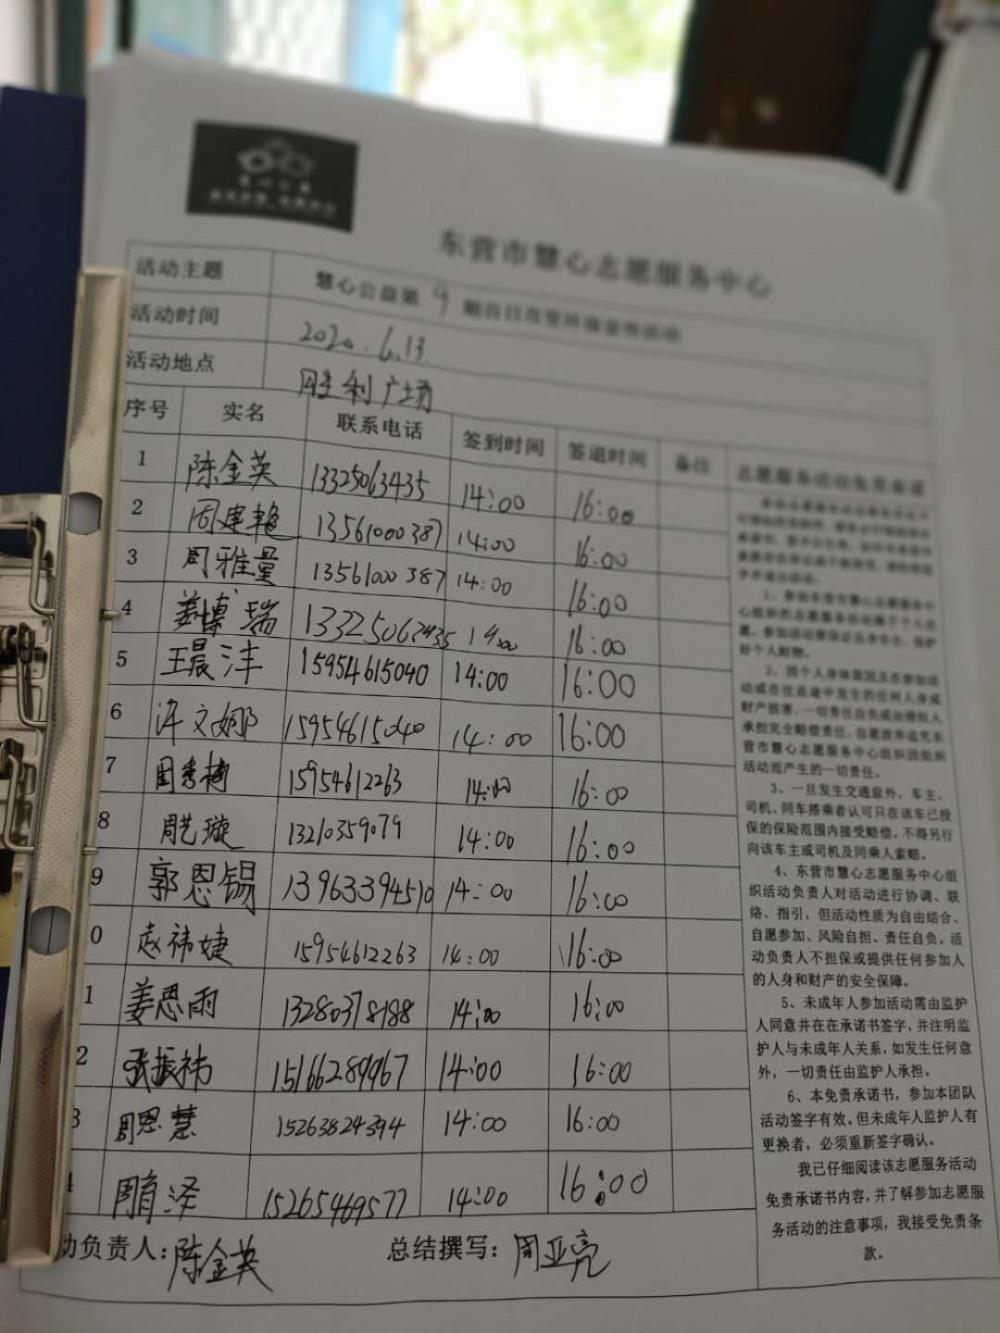 东营市慧心志愿服务中心
活动主题 慧心公益第9期百日攻坚环保宣传活动
活动时间 2020.6.13.
活动地点 胜利广场
序号 实名 联系电话 签到时间 签退时间 备注
1 陈金英 13325063435 14:00 16:00
2 周建艳 13561000387 14:00 16:00
3 周雅量 13561000387 14:00 16:00
4 姜博瑞 13325063435 14:00 16:00
5 王晨沣 15954615040 14:00 16:00
6 许文娜 15954615040 14:00 16:00
7 15954612263 14:00 16:00
8 周艺璇 13210359079 14:00 16:00
9 郭恩锡 13963394510 14:00 16:00
0 赵祎婕 15954612263 14:00 16:00
1 姜恩雨 13280378188 14:00 16:00
2 张振祎 15166289967 14:00 16:00
3 周思慧 15263824394 14:00 16:00
4 周育泽 15265469577 14:00 16:00
动负责人:陈金英 总结撰写:周亚亮
志愿服务活动免责承诺
1、参加东营市慧心志愿服务中
心组织的志愿服务活动属于个人自
愿，参加活动需保证自身安全，保护
好个人财物。
2、因个人身体原因及在参加活
动或在往返途中发生的任何人身或
财产损害，一切责任自负或由侵权人
承担完全赔偿责任，自愿放弃追究东
营市慧心志愿服务中心组织因组织
活动而产生的一切责任。
3、一旦发生交通意外，车主、
司机、同车搭乘者认可只在该车已投
保的保险范围内接受赔偿，不得另行
向该车主或司机及同乘人索赔。
4、东营市慧心志愿服务中心组
织活动负责人对活动进行协调、联
络、指引，但活动性质为自由结合、
自愿参加、风险自担、责任自负。活
动负责人不担保或提供任何参加人
的人身和财产的安全保障。
5、未成年人参加活动需由监护
人同意并在在承诺书签字，并注明监
护人与未成年人关系，如发生任何意
外，一切责任由监护人承担。
6、本免责承诺书，参加本团队
活动签字有效，但未成年人监护人有
更换者，必须重新签字确认。
我已仔细阅读该志愿服务活动
免责承诺书内容，并了解参加志愿服
务活动的注意事项，我接受免责条
款。